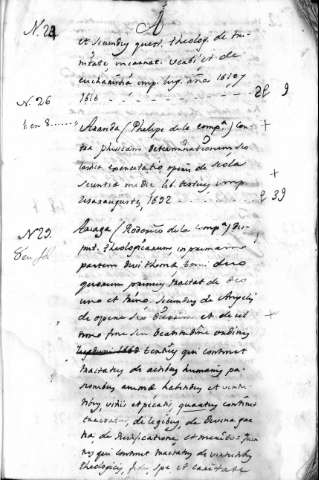 A
N. 24
et secundus quest. theolog. de tri-
nitate incarnat. verbi et de
eucharistia imp. lug. año 1610 y
1616 - - - - - - 22 9
N. 26
1 en 8 Aranda (Phelipe de la comp.ª) con
tra phisicam determinationem seo
lastica exercitatio opus de scola
scientia media lib. tertius imp.
Cesaraugusta, 1692 2 39
N. 27
8 en fol Ariaga (Roderico de la comp.ª) Dis-
put. theologicarum in primam
partem Divi thoma tomi duo
quorum primus tractat de Deo
uno et trino. secundus de Angelis
de opere sex Dierum et de ul
timo fine seu beatitudine
1669 tertius qui continet
tractatus de actibus humanis pa-
sionibus anima habitibus et virtu
tibus, vitiis et pecatis, quartus continet
tractatus de legibus, de Divina gra
tia, de Justificatione et merito
tus qui continet tractatus de virtutibus
theologicis, fide, spe et caritate